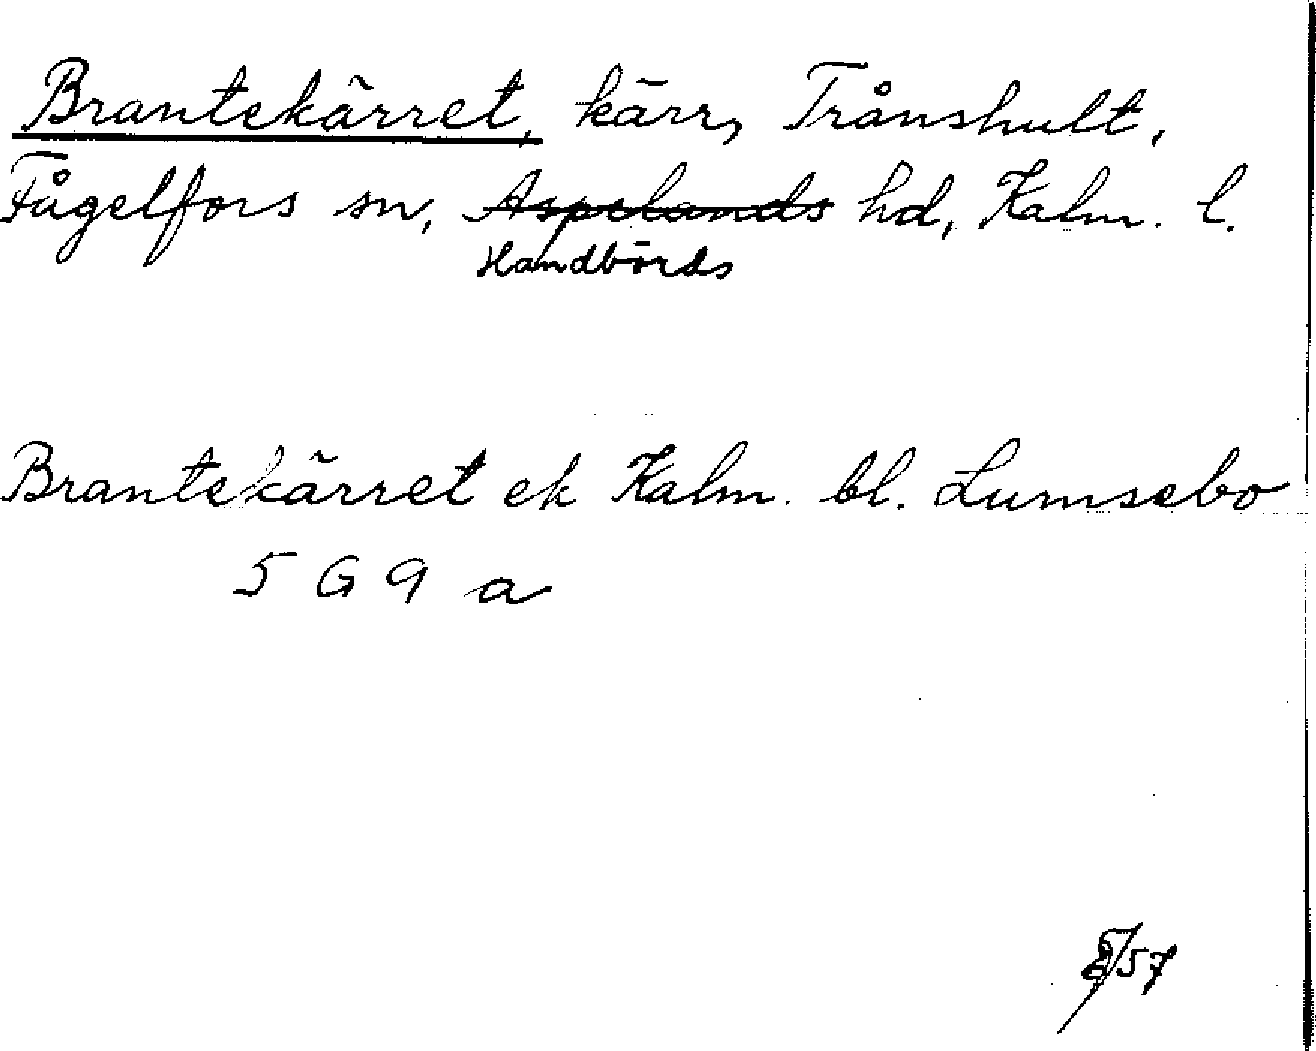 Brantekärret, kärr, Trånshult,
Fågelfors sn, Aspelands hd, Kalm. l.
Handbörds
Brantekärret ek Kalm. bl. Lumsebo
5 G 9 a
/57